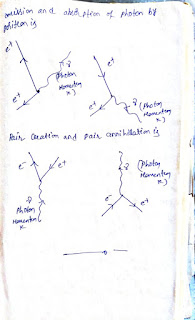 emission and absorption of photon by
positron is
e+
γ
(Photon
Momentum
K)
e+
e+
e+
γ (Photon
Momentum
K)
Pair Creation and pair annihilation is
e-
e+
γ
Photon
Momentum
K
γ (Photon
Momentum
K)
e-
e+